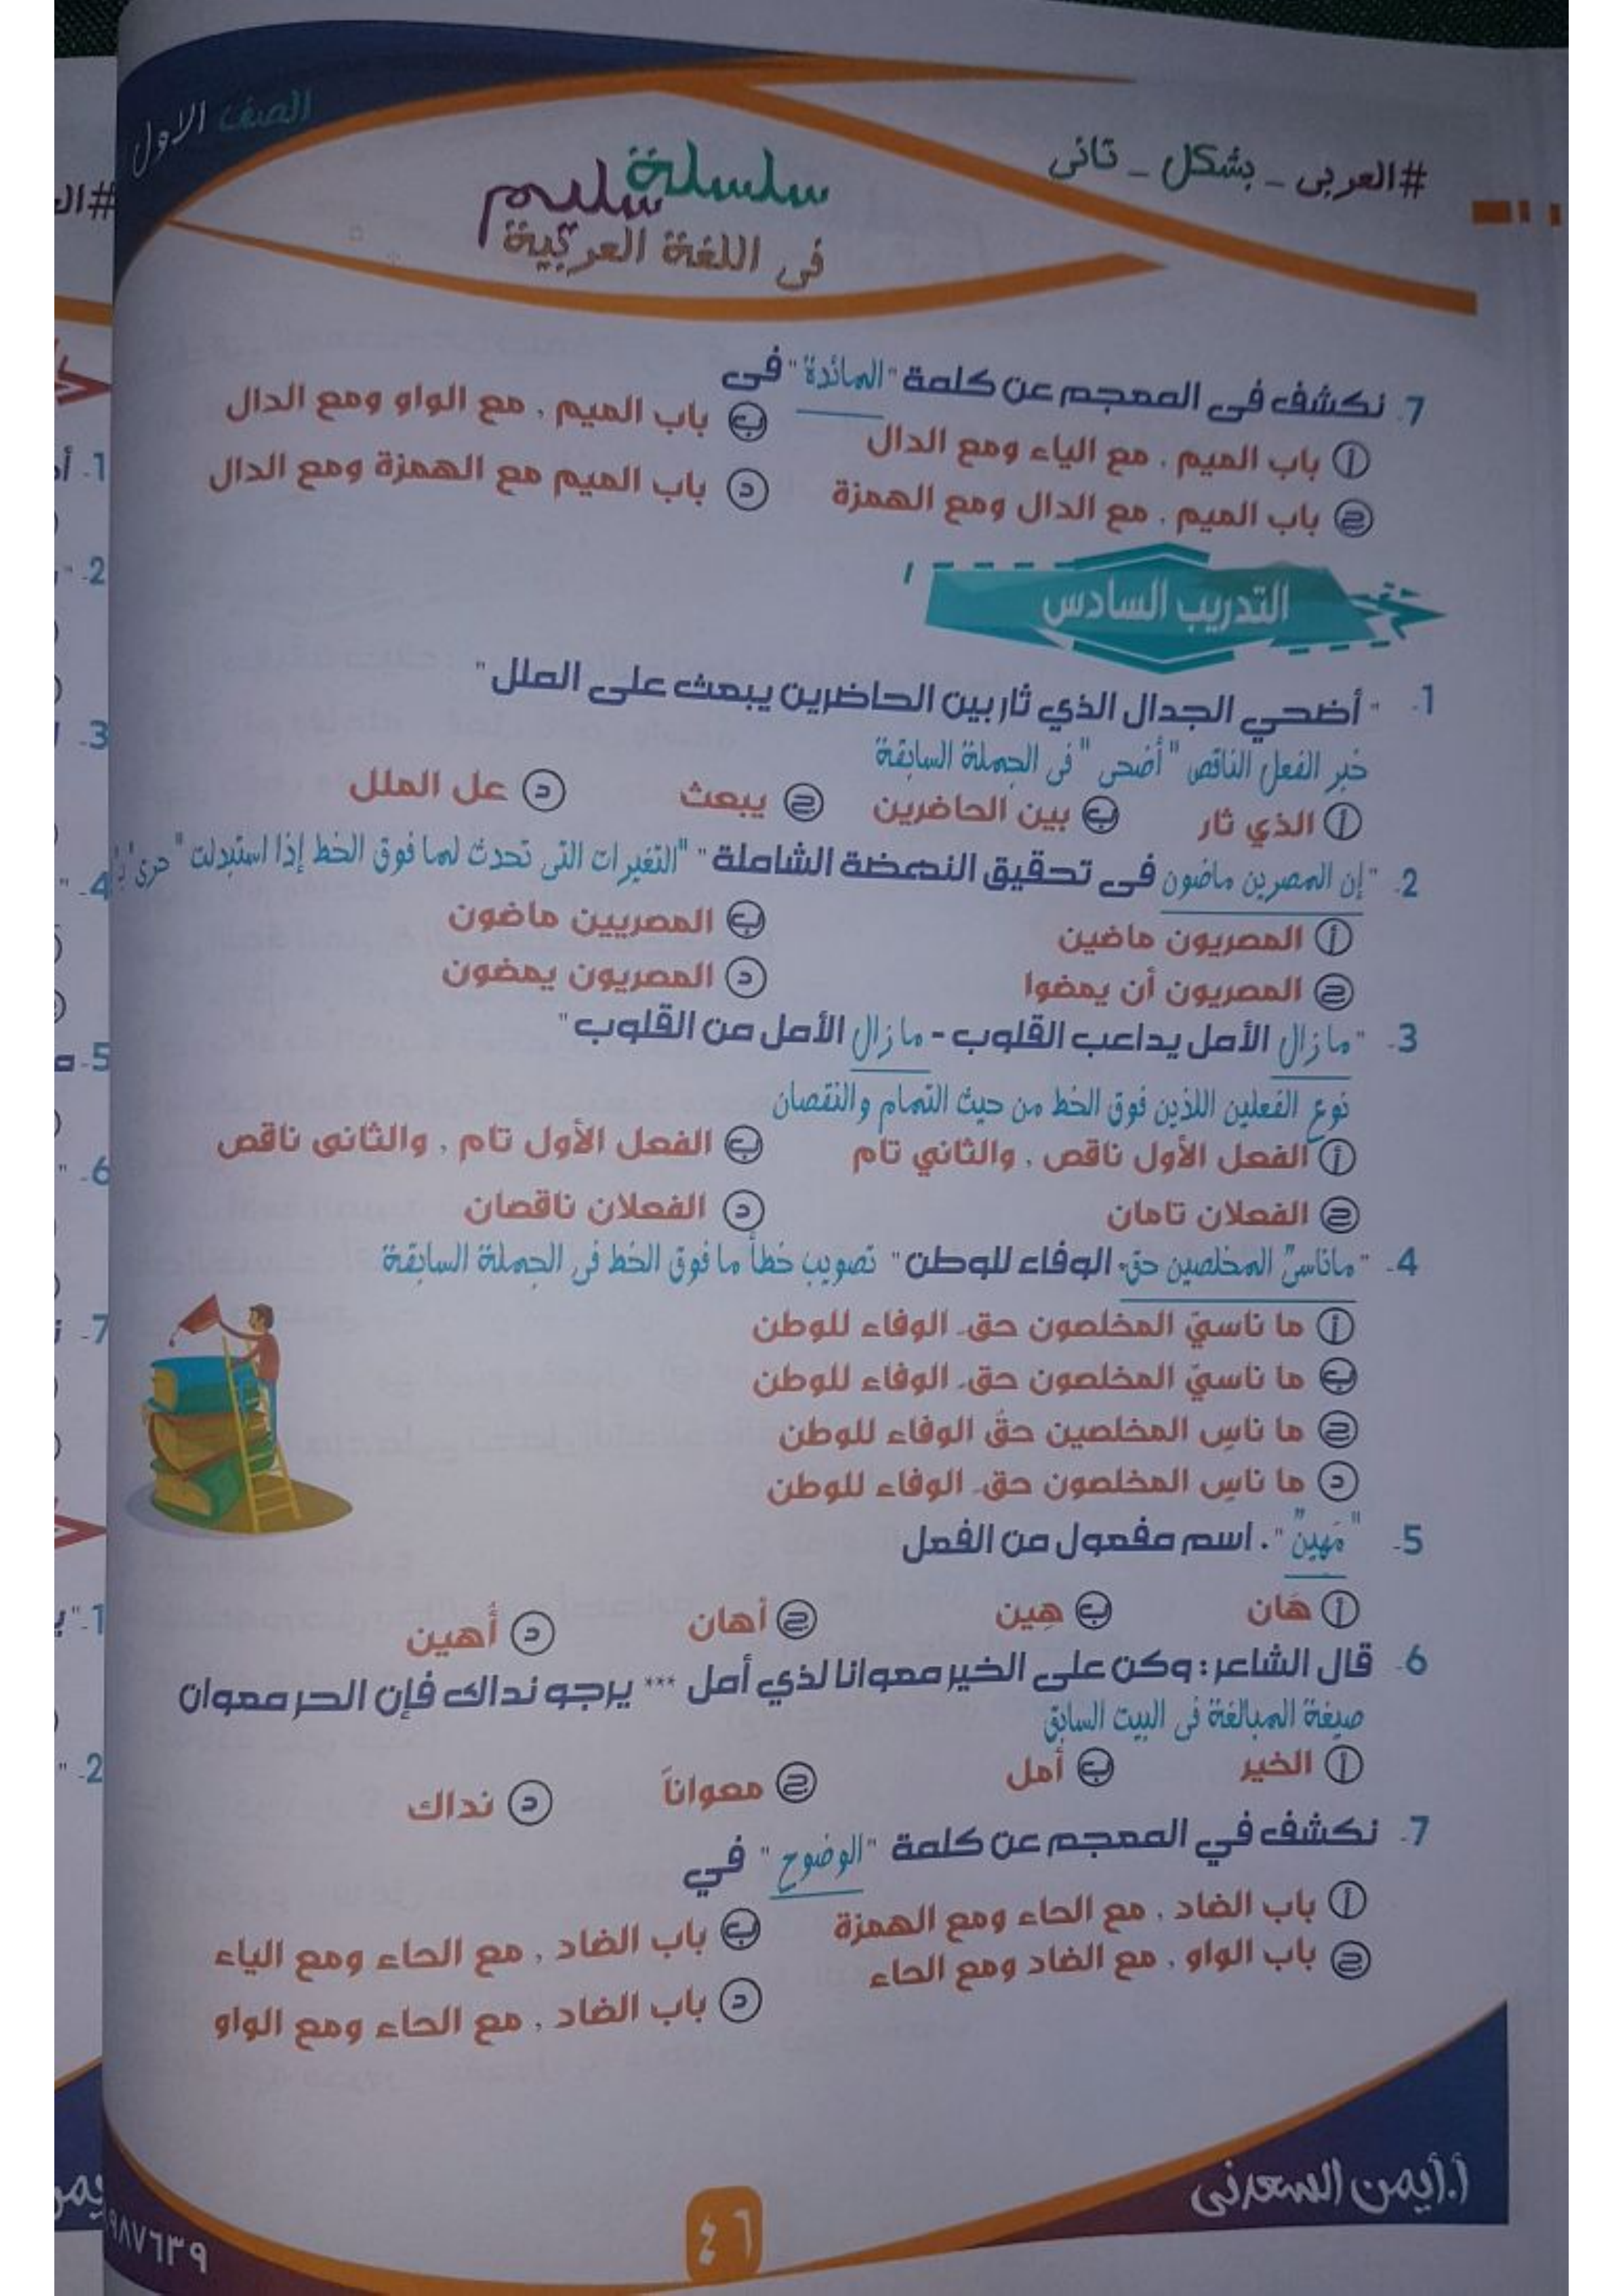 الصف الاول
#العربى _ بشكل _ تانى
سلسلة سليم
فى اللغة العربية
7. نكشف فى المعجم عن كلمة "المائدة" فى
أ باب الميم , مع الياء ومع الدال
ب باب الميم , مع الواو ومع الدال
ج باب الميم , مع الدال ومع الهمزة
د باب الميم مع الهمزة ومع الدال
التدريب السادس
1. "أضحي الجدال الذي ثار بين الحاضرين يبعث على الملل"
خبر الفعل الناقص "أضحى" فى الجملة السابقة
أ الذي ثار ب بين الحاضرين ج يبعث د عل الملل
2. "إن المصرين ماضون فى تحقيق النهضة الشاملة" "التغيرات التى تحدث لما فوق الخط إذا استبدلت "حرى" بـ
أ المصريون ماضين ب المصريين ماضون
ج المصريون أن يمضوا د المصريون يمضون
3. "ما زال الأمل يداعب القلوب - ما زال الأمل من القلوب"
نوع الفعلين اللذين فوق الخط من حيث التمام والنقصان
أ الفعل الأول ناقص , والثاني تام ب الفعل الأول تام , والثانى ناقص
ج الفعلان تامان د الفعلان ناقصان
4. "ماناسىّ المخلصين حق. الوفاء للوطن" تصويب خطأ ما فوق الخط فى الجملة السابقة
أ ما ناسيّ المخلصون حق. الوفاء للوطن
ب ما ناسيّ المخلصون حق. الوفاء للوطن
ج ما ناسِ المخلصين حقُ الوفاء للوطن
د ما ناسِ المخلصون حق. الوفاء للوطن
5. "مَهينٌ". اسم مفعول من الفعل
أ هَان ب هِين ج أهان د أُهين
6. قال الشاعر : وكن على الخير معوانا لذي أمل *** يرجو نداك فإن الحر معوان
صيغة المبالغة فى البيت السابق
أ الخير ب أمل ج معواناً د نداك
7. نكشف في المعجم عن كلمة "الوضوح" في
أ باب الضاد , مع الحاء ومع الهمزة ب باب الضاد , مع الحاء ومع الياء
ج باب الواو , مع الضاد ومع الحاء د باب الضاد , مع الحاء ومع الواو
أ.أيمن السعدنى
٤٦
٩٨٧٦٣٩
#ال
1. أ
2.
3.
4. "
5.
6. "
7.
1. "
2. "